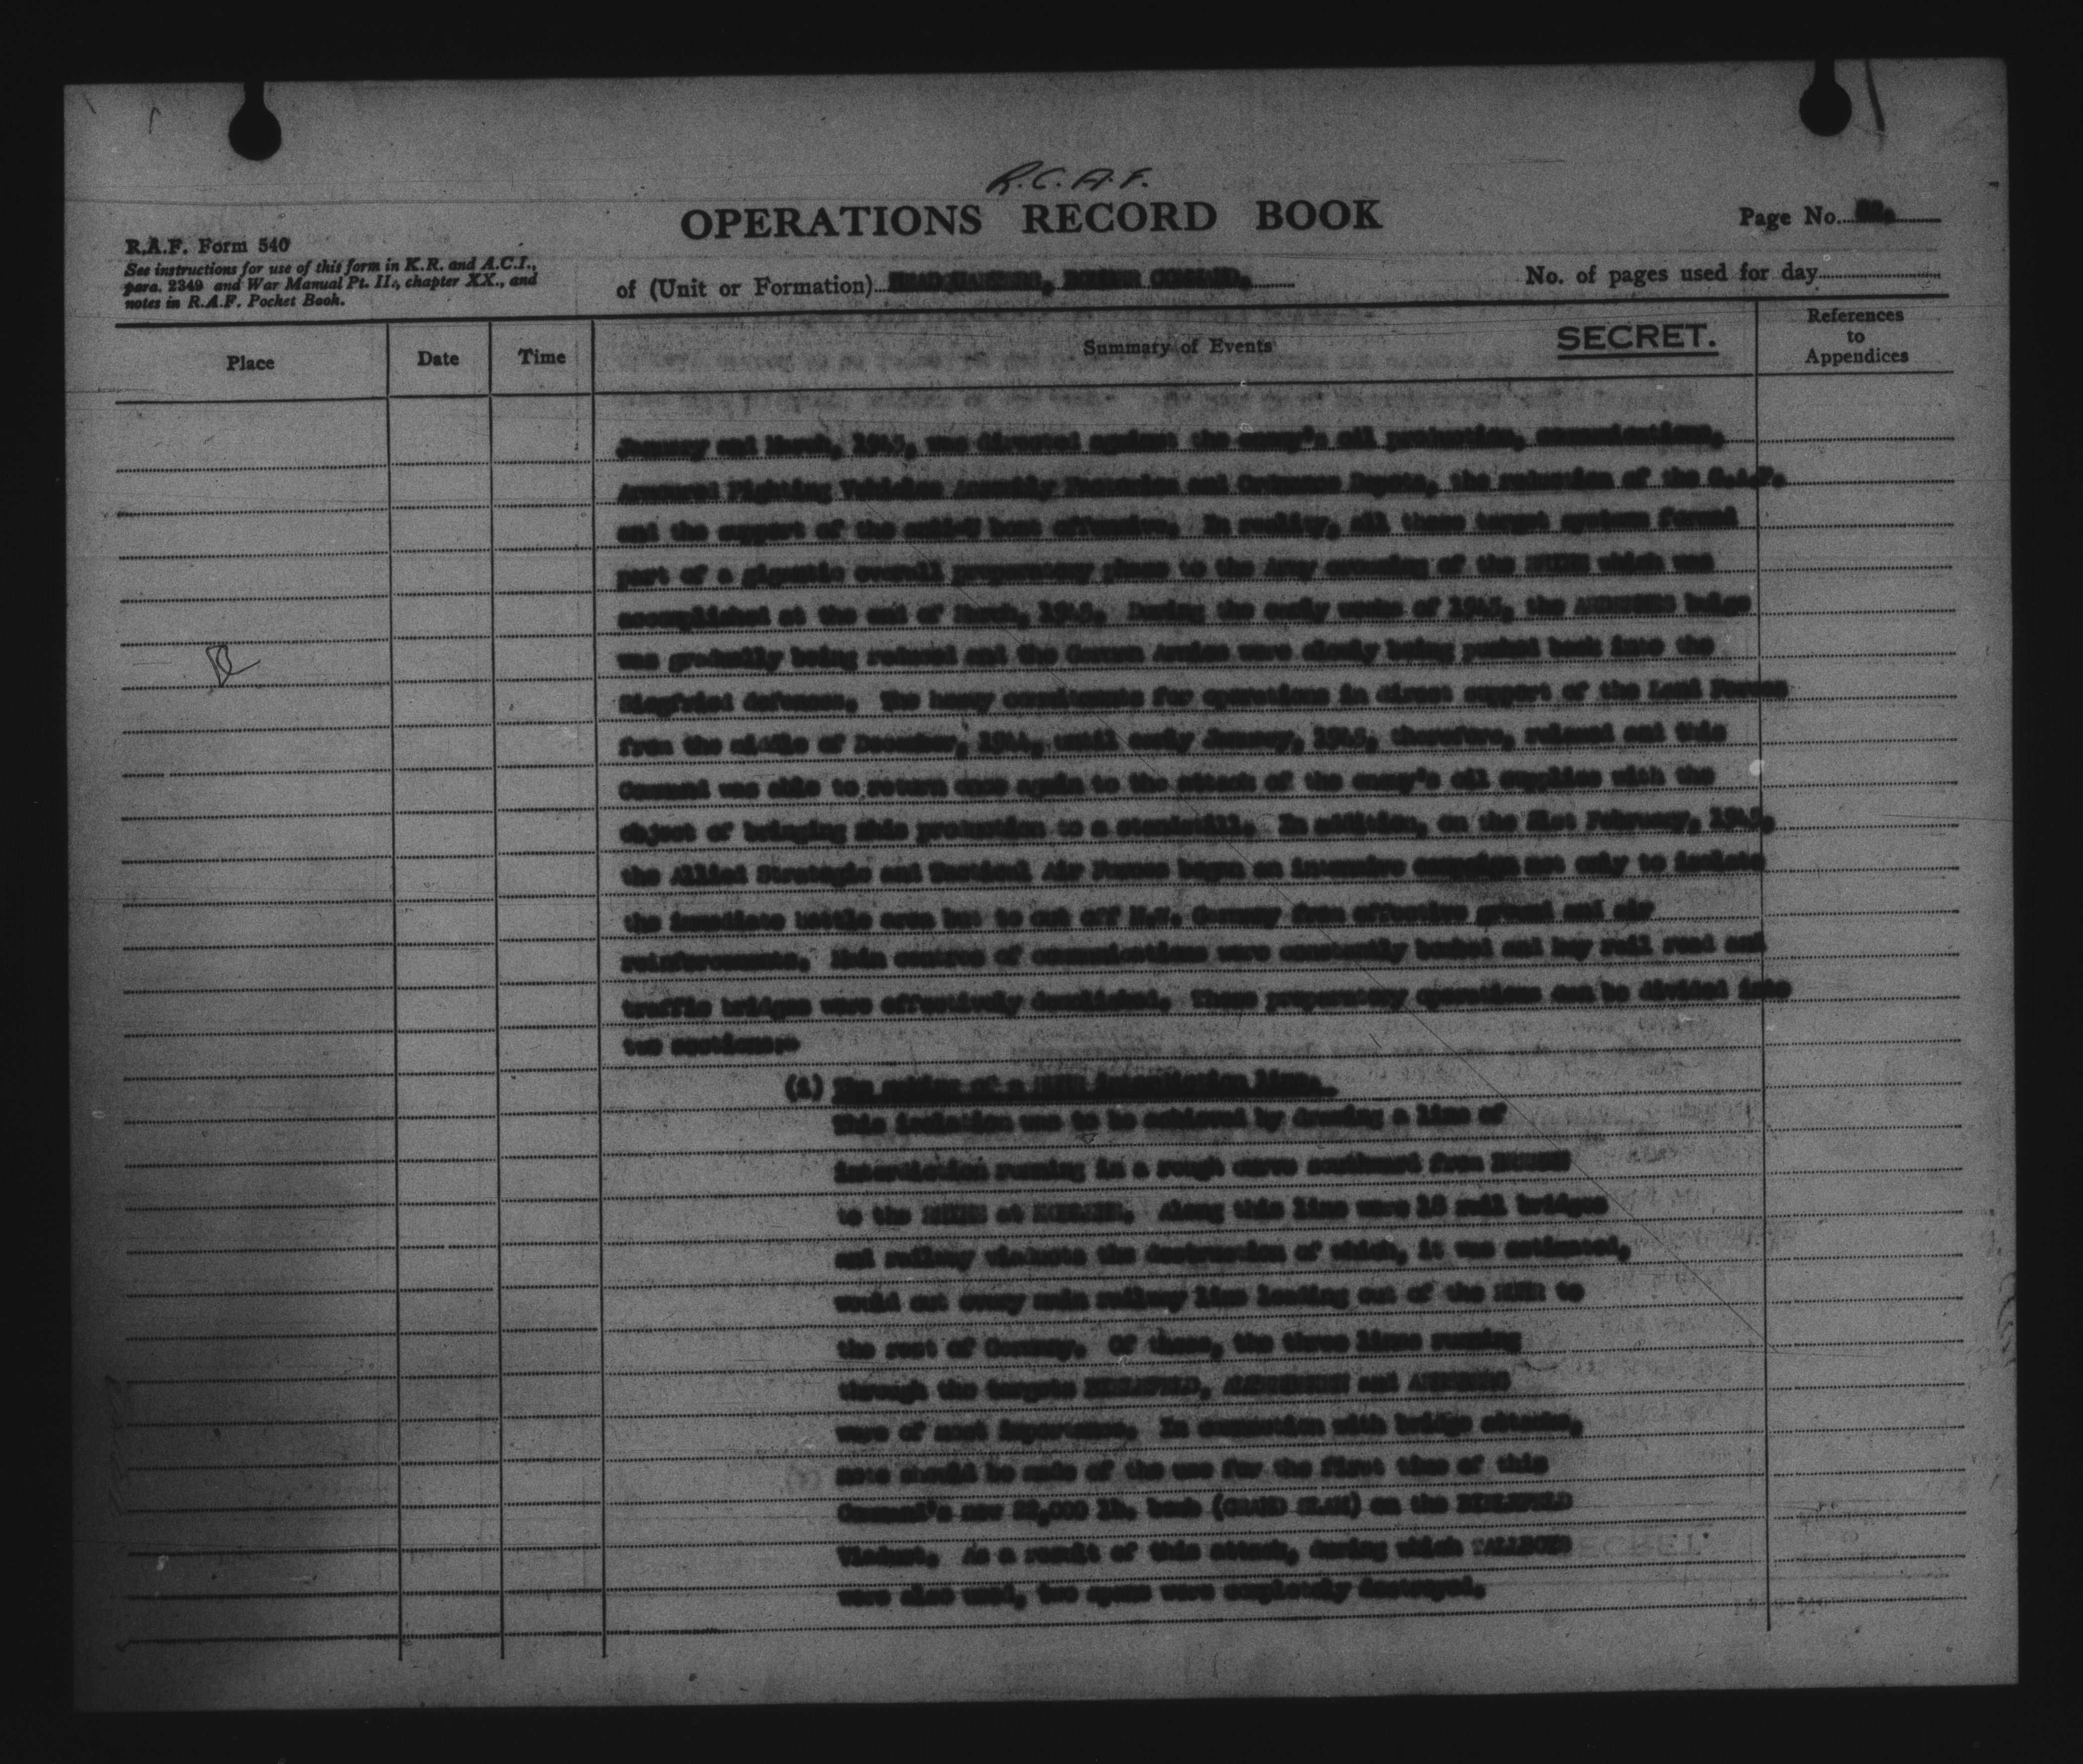 R.C.A.F.
OPERATIONS RECORD BOOK
Page No.
R.A.F. Form 540
See instructions for use of this form in K.R. and A.C.I.,
para. 2349 and War Manual Pt. II., chapter XX., and
notes in R.A.F. Pocket Book.
of (Unit or Formation) HEADQUARTERS, BOMBER COMMAND.
No. of pages used for day
Place
Date
Time
Summary of Events
SECRET.
References
to
Appendices
January and March, 1945, was directed against the enemy's oil production, communications,
Armoured Fighting Vehicles Assembly Factories and Ordnance Depots, the reduction of the G.A.F.
and the support of the offensive. In reality, all these target systems formed
part of a gigantic overall preparatory phase to the Army crossing of the RHINE which was
accomplished at the end of March, 1945. During the early weeks of 1945, the ARDENNES bulge
was gradually being reduced and the German Armies were slowly being pushed back into the
Siegfried defences. The heavy commitments for operations in direct support of the Land Forces
from the middle of December, 1944, until early January, 1945, therefore, relaxed and this
Command was able to return once again to the attack of the enemy's oil supplies with the
object of bringing this production to a standstill. In addition, on the 21st February, 1945,
the Allied Strategic and Tactical Air Forces began an intensive campaign not only to isolate
the immediate battle area but to cut off N.W. Germany from effective ground and air
reinforcements. Main centres of communications were constantly bombed and key rail road and
traffic bridges were effectively demolished. These preparatory operations can be divided into
two sections:-
(i) The making of a RUHR Interdiction Line.
This isolation was to be achieved by drawing a line of
interdiction running in a rough curve southward from BREMEN
to the RHINE at KOBLENZ. Along this line were 18 rail bridges
and railway viaducts the destruction of which, it was estimated,
would cut every main railway line leading out of the RUHR to
the rest of Germany. Of these, the three lines running
through the targets BIELEFELD, ALTENBEKEN and ARNSBERG
were of most importance. In connection with bridge attacks,
note should be made of the use for the first time of this
Command's new 22,000 lb. bomb (GRAND SLAM) on the BIELEFELD
Viaduct. As a result of this attack, during which TALLBOYS
were also used, two spans were completely destroyed.